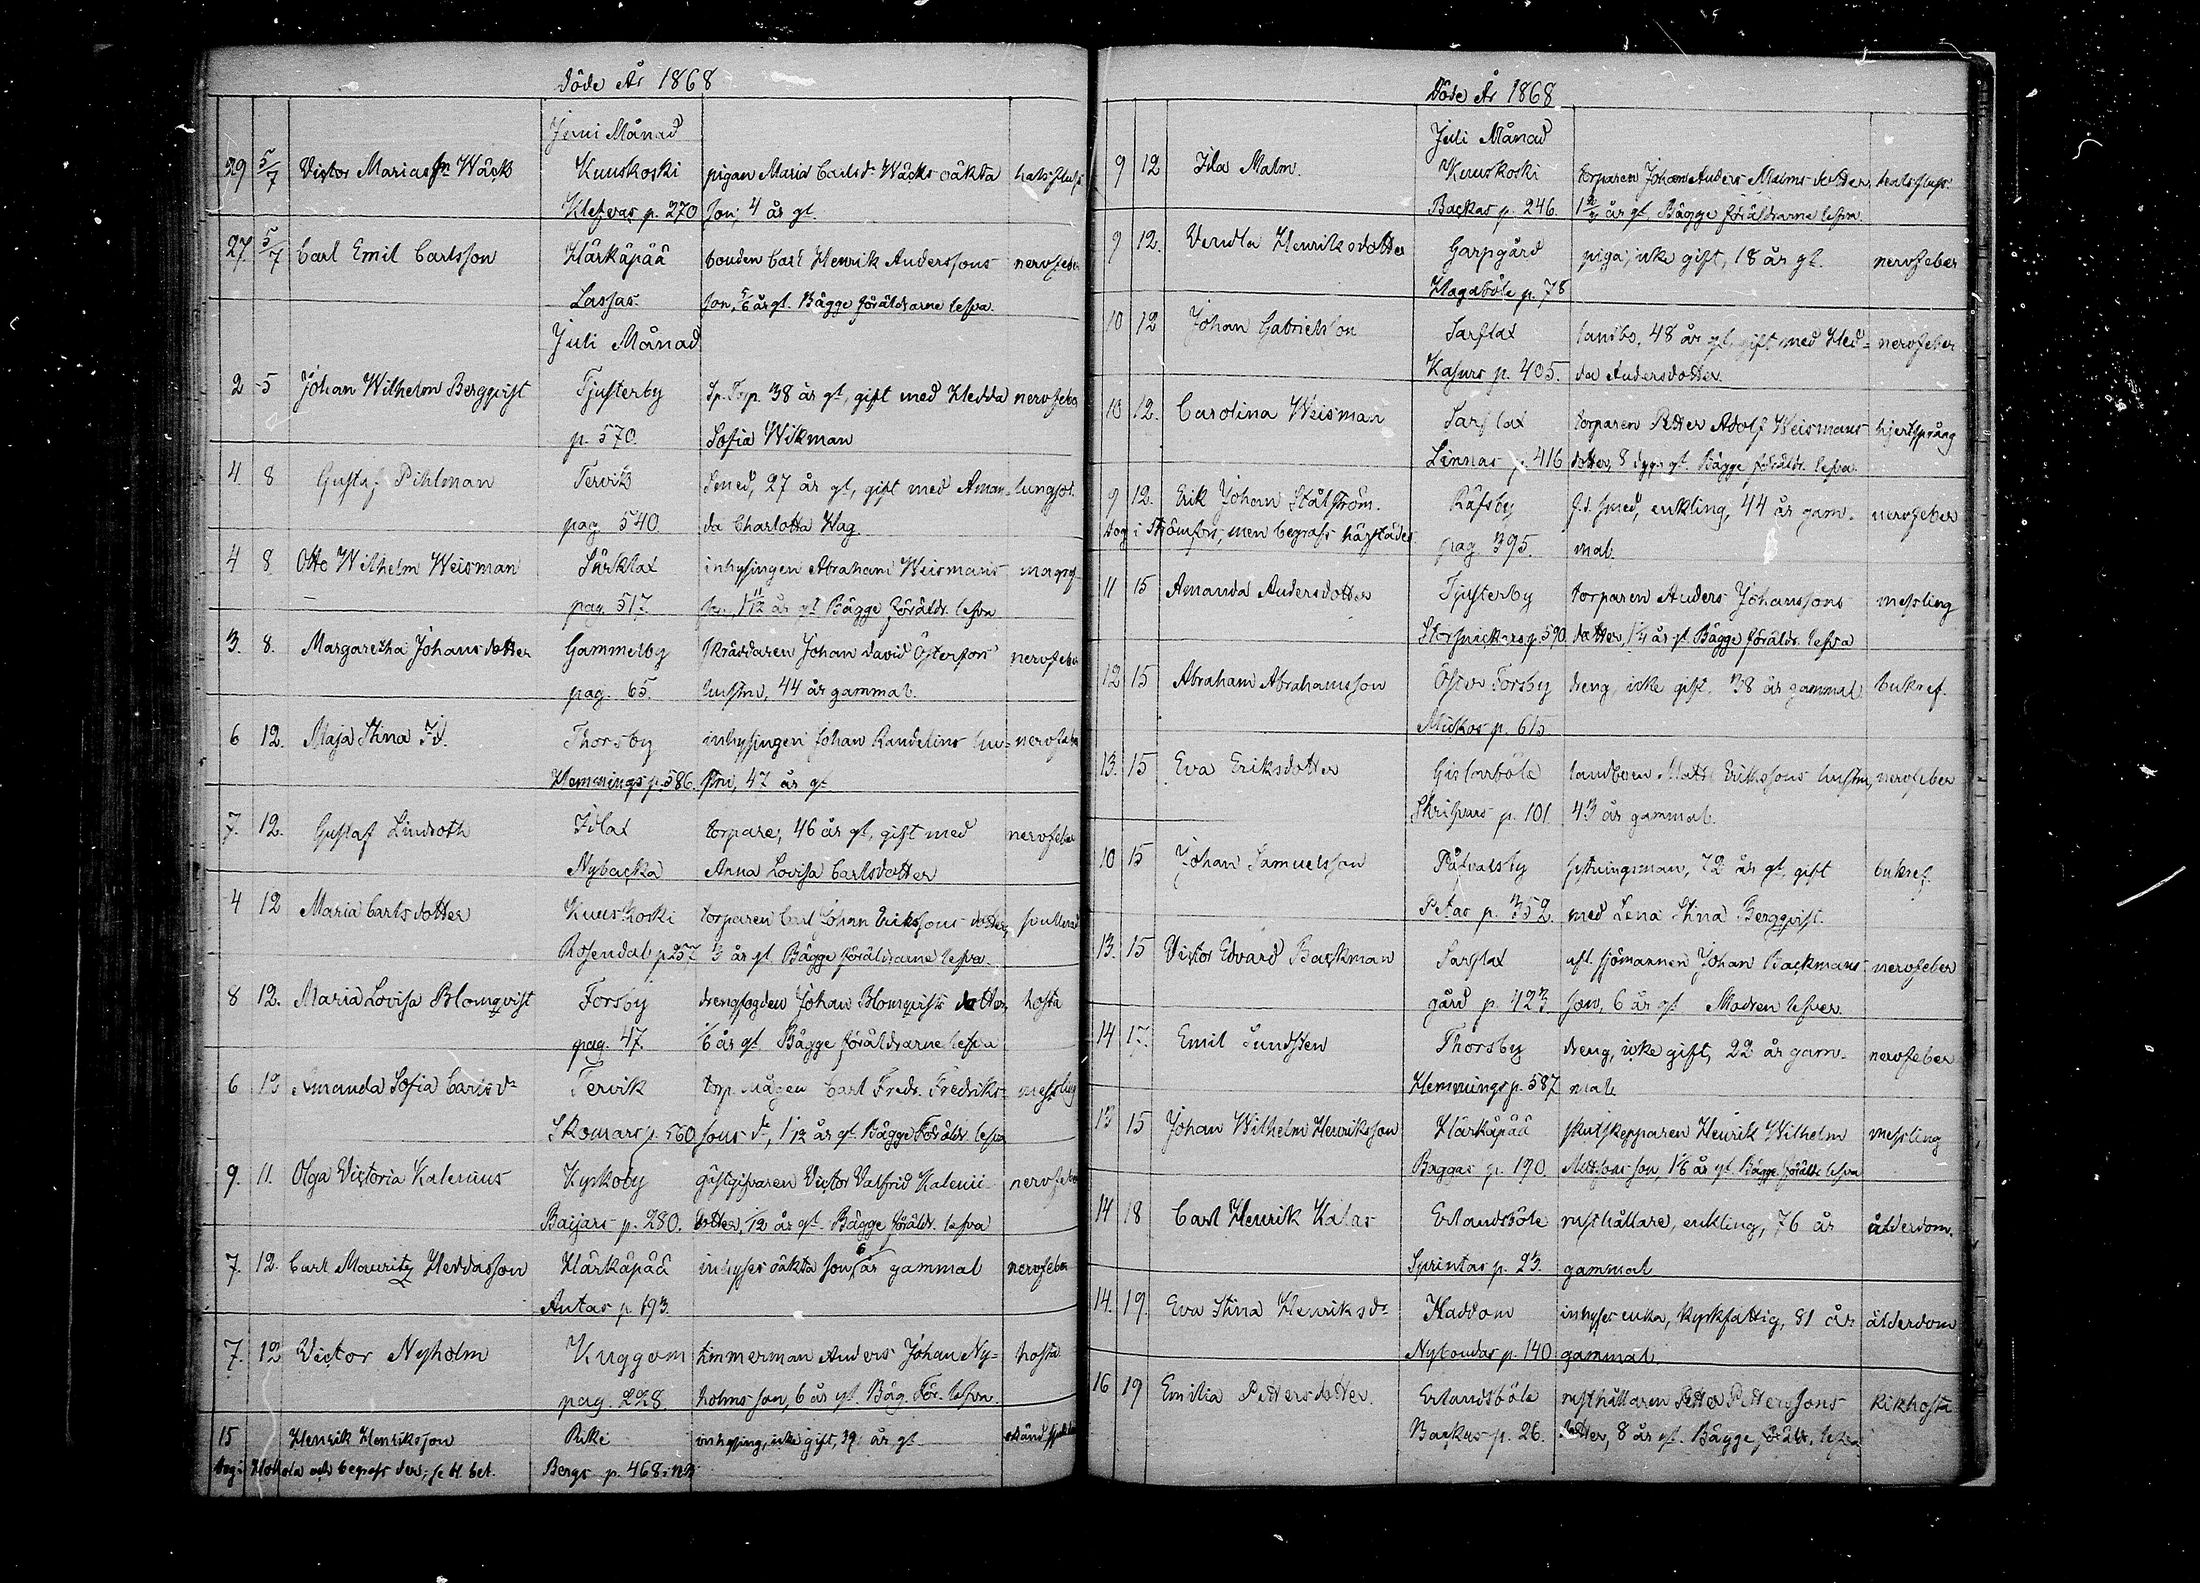 Döde År 1868
Juni Månad
29 5/7 Victor Mariasson Wäck Kuuskoski pigan Maria Carlsd:r Wäcks oäkta
Klefvas p. 270 son, 4 år gl.
27 5/7 Carl Emil Carlsson Härkäpää bonden Carl Henrik Anderssons nervfeber
Lassas son, 5/6 år gl. Bägge föräldrarne lefva.
Juli Månad
2 5 Johan Wilhelm Bergqvist Tjusterby Sp. Torp. 38 år gl, gift med Hedda nervfeber
p. 570. Sofia Wikman
4 8 Gustaf Pihlman Tervik Smed, 27 år gl, gift med Aman- lungsot.
pag. 540 da Charlotta Hag
4 8 Otto Wilhelm Weisman Särklax inhysingen Abraham Weismans
pag 517 son, 1 11/12 år gl Bägge föräldr. lefva
3. 8. Margaretha Johansdotter Gammelby skräddaren Johan David Östersons nervfeber
pag. 65. hustru, 44 år gammal.
6 12. Maja Stina Id. Thorsby inhysingen Johan Randelins hu- nervfeber
Hemmings p. 586. stru, 47 år gl
7. 12. Gustaf Lindroth Islax torpare, 46 år gl, gift med nervfeber
Nybacka Anna Lovisa Carlsdotter
4 12 Maria Carlsdotter Kuuskoski torparen Carl Johan Erikssons dotter,
Rosendal p 257 3 år gl. Bägge föräldrarne lefva.
8 12. Maria Lovisa Blomqvist Forsby drengfogden Johan Blomqvists dotter, hosta
pag. 47. 1/6 år gl. Bägge föräldrarne lefva
6 12 Amanda Sofia Carlsd:r Tervik torp. mågen Carl Fredr. Fredriks- messling
Skomars p. 560 sons d:r, 1 1/12 år gl. Bägge Föräldr. lefva
9. 11. Olga Victoria Kalenius Kyrkoby gästgifvaren Victor Valfrid Kalenii nervfeber
Baijars p. 280. dotter, 1/12 år gl. Bägge föräldr. lefva
7. 12. Carl Mauritz Heddasson Härkäpää inhyses oäkta son, 6 år gammal nervfeber
Antas p 193.
7. 12 Victor Nyholm Kuggom timmerman Anders Johan Ny- hosta
pag. 228. holms son, 6 år gl. Bäg. För. lefva.
15 Henrik Henriksson Reki inhysing, icke gift, 39 år gl
dog i och begrafs der, se bl. bet. Bergs p. 468
Döde År 1868
Juli Månad
9 12 Ida Malm. Kuuskoski torparen Johan Anders Malms dotter halsfluss.
Backas p. 246. år gl. Bägge föräldrarne lefva.
9 12. Vendla Henriksdotter Garpgård piga, icke gift, 18 år gl. nervfeber
Hagaböle p. 78
10 12 Johan Gabrielsson Sarflax landbo, 48 år gl, gift med Hed- nervfeber
Kasurs p. 405. da Andersdotter.
10 12. Carolina Weisman Sarflax torparen Petter Adolf Weismans hjertsprång
Linnas p. 416 dotter, 8 dygn gl. Bägge föräldr. lefva.
9 12. Erik Johan Stålström. Räfsby f.d. smed, enkling, 44 år gam- nervfeber
dog i Strömfors, men begrafs härstädes pag 395. mal.
11 15 Amanda Andersdotter Tjusterby torparen Anders Johanssons messling
Storspickars p. 590. dotter, 1 1/4 år gl. Bägge föräldr. lefva
12 15 Abraham Abrahamsson Öster Forsby dreng, icke gift, 38 år gammal bukref.
Mickos p. 615
13. 15 Eva Eriksdotter Gislarböle landboen Matts Erikssons hustru, nervfeber
Skrifvars p. 101 43 år gammal.
10 15 Johan Samuelsson Påvalsby sytningsman, 72 år gl, gift bukref.
Petas p. 352. med Lena Stina Bergqvist.
13. 15 Victor Edvard Backman Sarflax afl. sjömannen Johan Backmans nervfeber
gård p. 423 son, 6 år gl Modren lefver.
14 17. Emil Sundsten Thorsby dreng, icke gift, 22 år gam- nervfeber
Hemmings p. 587 mal.
13 15 Johan Wilhelm Henriksson Härkäpää skutskepparen Henrik Wilhelm messling
Baggas p. 190. son, 1 1/6 år gl. Bägge föräldr lefva
14 18 Carl Henrik Kalas Erlandsböle rusthållare, enkling, 76 år ålderdom.
Sprintas p. 23. gammal
14. 19. Eva Stina Henriksd:r Haddom inhyses enka, kyrkfattig, 81 år ålderdom
Nybondas p. 140 gammal.
16 19 Emilia Pettersdotter. Erlandsböle rusthållaren Petter Petterssons kikhosta
Backas p. 26. dotter, 8 år gl. Bägge föräldr. lefva